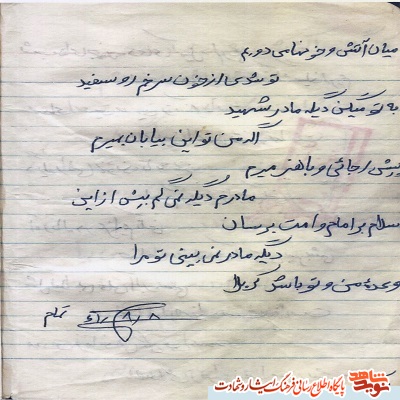 میان آتش و خون می دوم
تو شدی از خون سرخم رو سفید
به تو میگن دیگه مادر شهید
اگه من تو این بیابان بمیرم
پیش رجائی و باهنر میرم
مادرم دیگه نمی گم بیش از این
سلام بر امام و امت برسان
دیگه مادر نمی بینی تو مرا
وعدهٔ من و تو باشه کربلا
تمام ۶۱/۸/۸
نوید شاهد
پایگاه اطلاع رسانی فرهنگ ایثار و شهادت